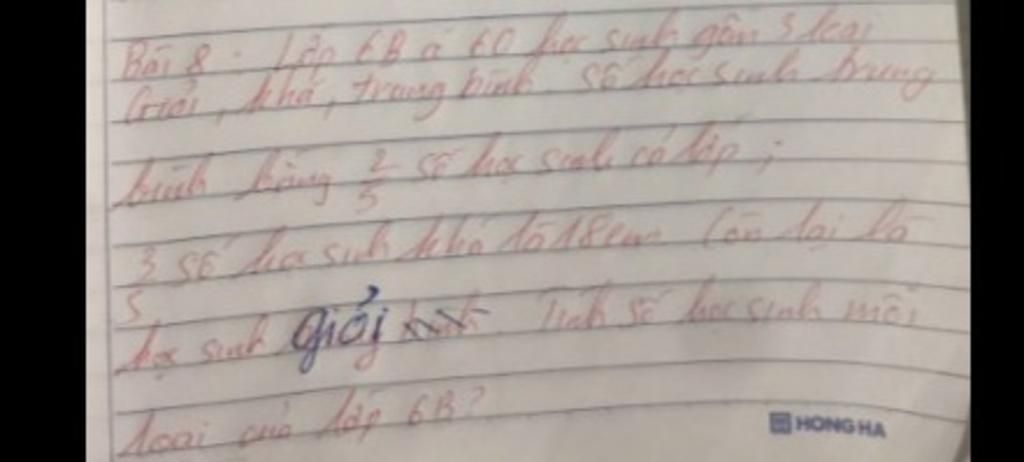 Bài 8: Lớp 6B có 60 học sinh gồm 3 loại
Giỏi, khá, trung bình. Số học sinh trung
bình bằng 2/5 số học sinh cả lớp;
3/5 số học sinh khá là 18 em. Còn lại là
học sinh giỏi Tính số học sinh mỗi
loại của lớp 6B?
HONG HA